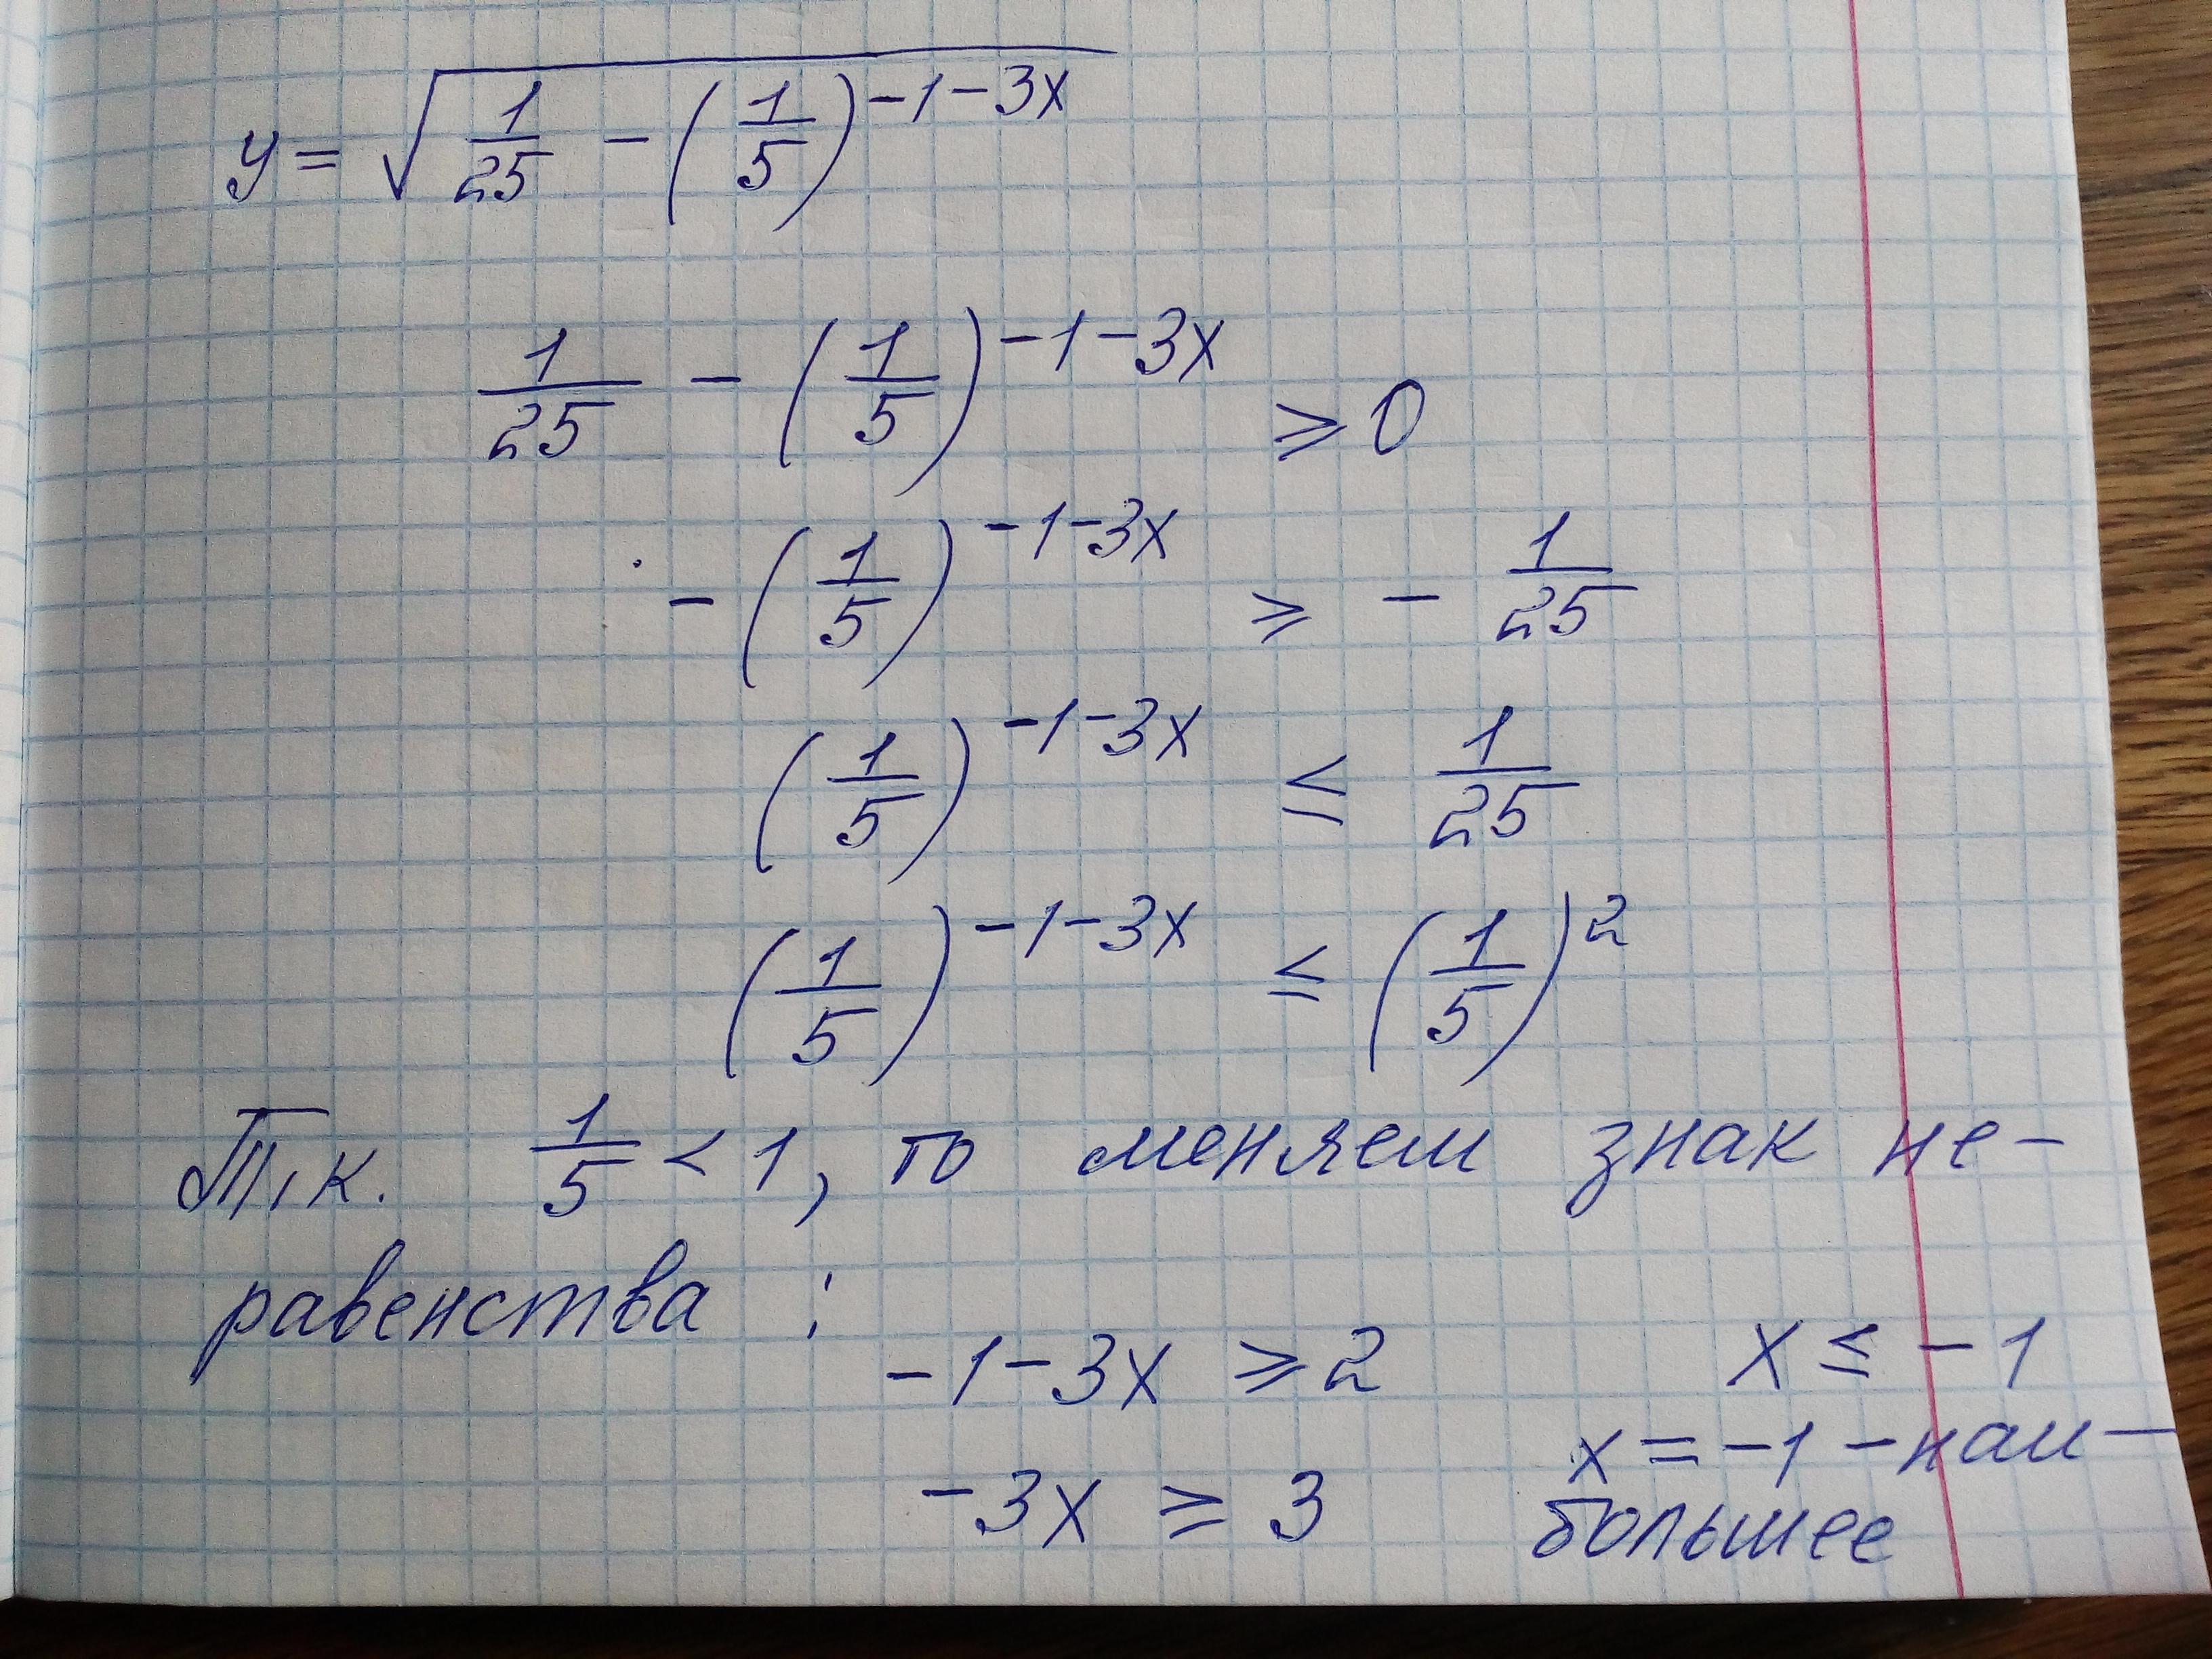 y = √(1/25 − (1/5)^(−1−3x))
1/25 − (1/5)^(−1−3x) ⩾ 0
−(1/5)^(−1−3x) ⩾ −1/25
(1/5)^(−1−3x) ≤ 1/25
(1/5)^(−1−3x) ≤ (1/5)^2
Т.к. 1/5 < 1, то меняем знак не-
равенства :
−1−3x ⩾ 2
x ≤ −1
−3x ⩾ 3
x = −1 − наи-
большее